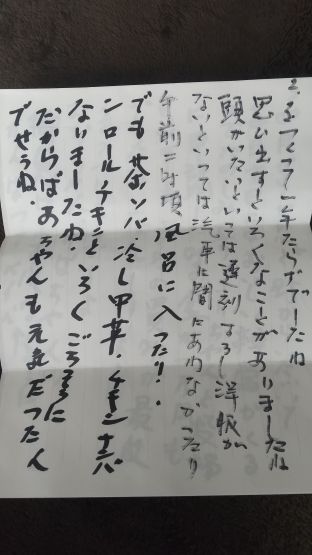 2.ふつくって一年たらずでしたね
思い出すといろくなことがありましたね
頭がいたいといっては遅刻するし洋服が
ないといっては汽車に間にあわなかったり
午前二時頃風呂に入ったり.
でも茶ソバ.冷し中華.チキンナンバ
ンロールチキンといろくごちそうに
なりましたね.
だからばあちゃんも元気だったん
でせうね.